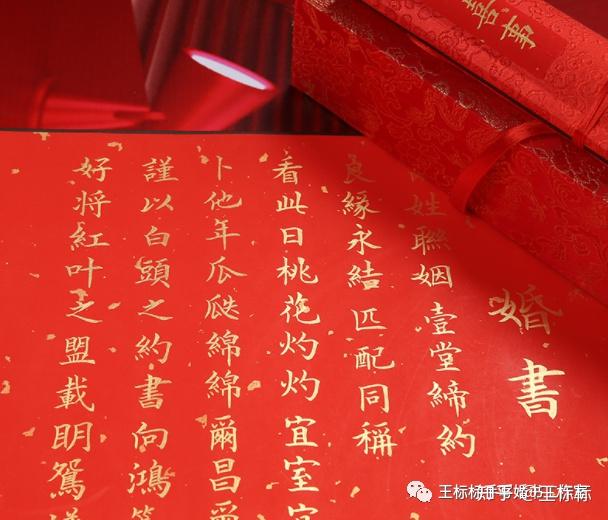 喜事
婚書
姓聯姻壹堂締約
良緣永結匹配同稱
看此日桃花灼灼宜室宜
卜他年瓜瓞綿綿爾昌爾
謹以白頭之約書向鴻箋
好將紅叶之盟載明鴛